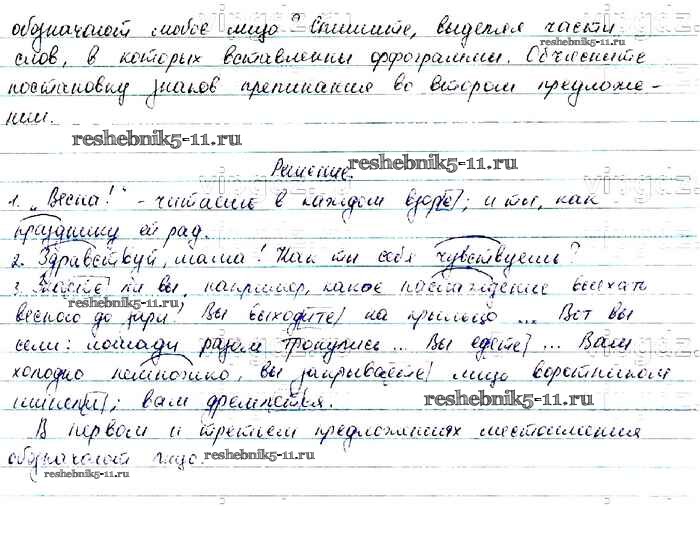 обозначают любое лицо? Спишите, выделяя части
слов, в которых вставлены орфограммы. Объясните
reshebnik5-11.ru
постановку знаков препинания во втором предложе-
нии.
reshebnik5-11.ru
Решение.
reshebnik5-11.ru
1. „Весна!“ - читаешь в каждом взоре; и ты, как
празднику ей рад.
2. Здравствуй, мама! Как ты себя чувствуешь?
3. Знаете ли вы, например, какое наслаждение выехать
reshebnik5-11.ru
весною до зари? Вы выходите на крыльцо ... Вот вы
сели: лошади разом тронулись ... Вы едете ... Вам
холодно немножко, вы закрываете лицо воротником
шинели; вам дремлется.
reshebnik5-11.ru
В первом и третьем предложениях местоимения
обозначают лицо.
reshebnik5-11.ru
reshebnik5-11.ru